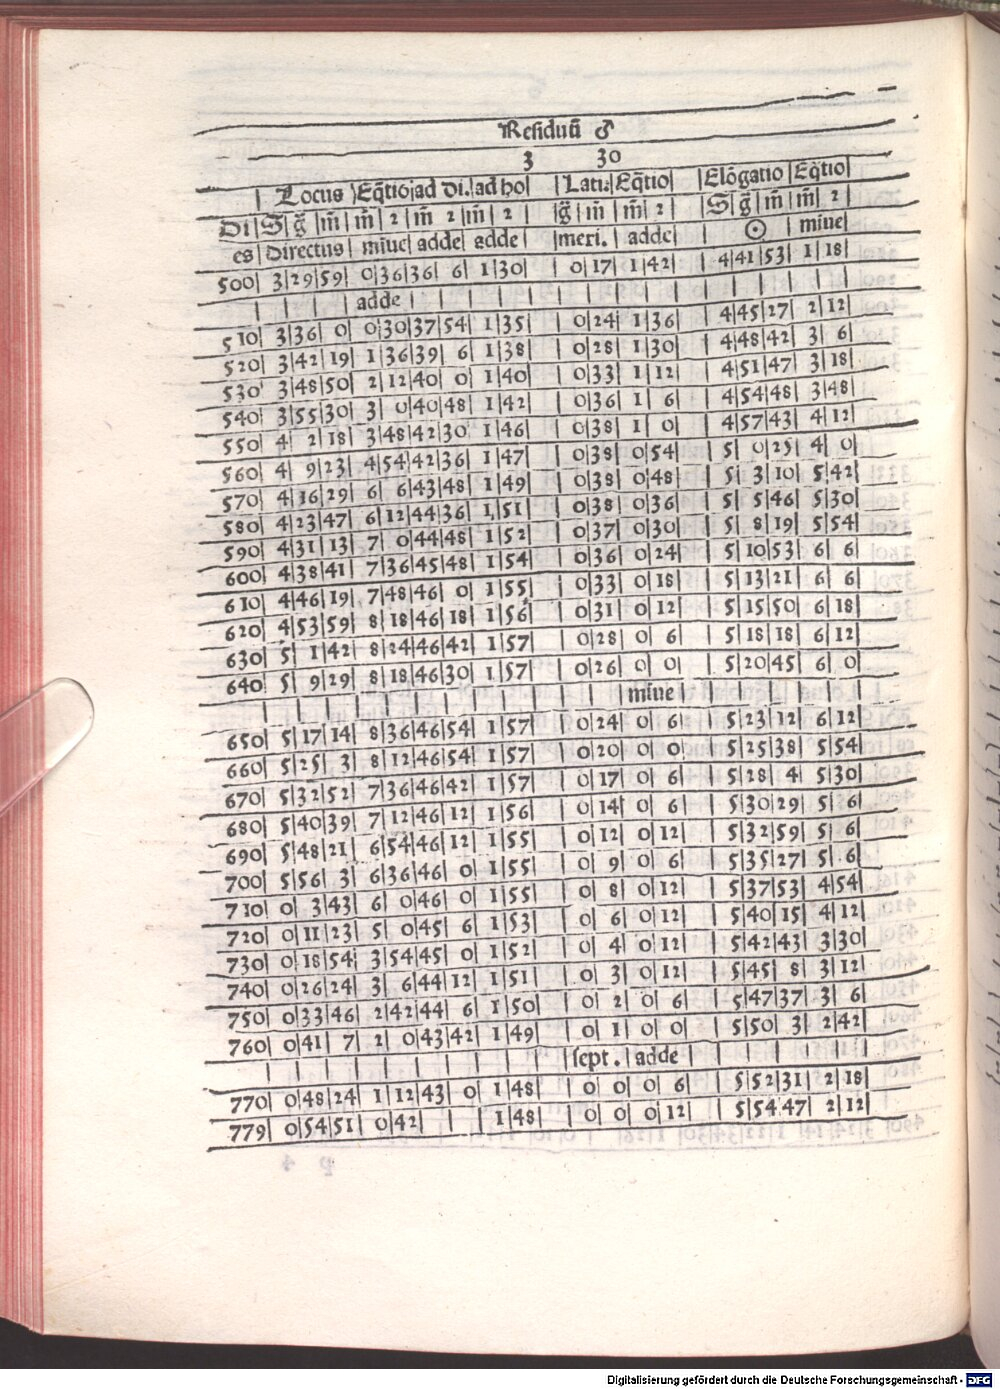 Residuū ♂
3 30
Locus | Eq̄tio | ad di. | ad ho | Latu | Eq̄tio | Elōgatio | Eq̄tio
Di | S | g̃ | m̄ | m̄ | 2 | m̄ | 2 | m̄ | 2 | g̃ | m̄ | m̄ | 2 | S | g̃ | m̄ | m̄ | 2
es | directus | miue | adde | adde | meri. | adde | ☉ | miue
500 | 3 | 29 | 59 | 0 | 36 | 36 | 6 | 1 | 30 | 0 | 17 | 1 | 42 | 4 | 41 | 53 | 1 | 18
adde
510 | 3 | 36 | 0 | 0 | 30 | 37 | 54 | 1 | 35 | 0 | 24 | 1 | 36 | 4 | 45 | 27 | 2 | 12
520 | 3 | 42 | 19 | 1 | 36 | 39 | 6 | 1 | 38 | 0 | 28 | 1 | 30 | 4 | 48 | 42 | 3 | 6
530 | 3 | 48 | 50 | 2 | 12 | 40 | 0 | 1 | 40 | 0 | 33 | 1 | 12 | 4 | 51 | 47 | 3 | 18
540 | 3 | 55 | 30 | 3 | 0 | 40 | 48 | 1 | 42 | 0 | 36 | 1 | 6 | 4 | 54 | 48 | 3 | 48
550 | 4 | 2 | 18 | 3 | 48 | 42 | 30 | 1 | 46 | 0 | 38 | 1 | 0 | 4 | 57 | 43 | 4 | 12
560 | 4 | 9 | 23 | 4 | 54 | 42 | 36 | 1 | 47 | 0 | 38 | 0 | 54 | 5 | 0 | 25 | 4 | 0
570 | 4 | 16 | 29 | 6 | 6 | 43 | 48 | 1 | 49 | 0 | 38 | 0 | 48 | 5 | 3 | 10 | 5 | 42
580 | 4 | 23 | 47 | 6 | 12 | 44 | 36 | 1 | 51 | 0 | 38 | 0 | 36 | 5 | 5 | 46 | 5 | 30
590 | 4 | 31 | 13 | 7 | 0 | 44 | 48 | 1 | 52 | 0 | 37 | 0 | 30 | 5 | 8 | 19 | 5 | 54
600 | 4 | 38 | 41 | 7 | 36 | 45 | 48 | 1 | 54 | 0 | 36 | 0 | 24 | 5 | 10 | 53 | 6 | 6
610 | 4 | 46 | 19 | 7 | 48 | 46 | 0 | 1 | 55 | 0 | 33 | 0 | 18 | 5 | 13 | 21 | 6 | 6
620 | 4 | 53 | 59 | 8 | 18 | 46 | 18 | 1 | 56 | 0 | 31 | 0 | 12 | 5 | 15 | 50 | 6 | 18
630 | 5 | 1 | 42 | 8 | 24 | 46 | 42 | 1 | 57 | 0 | 28 | 0 | 6 | 5 | 18 | 18 | 6 | 12
640 | 5 | 9 | 29 | 8 | 18 | 46 | 30 | 1 | 57 | 0 | 26 | 0 | 0 | 5 | 20 | 45 | 6 | 0
miue
650 | 5 | 17 | 14 | 8 | 36 | 46 | 54 | 1 | 57 | 0 | 24 | 0 | 6 | 5 | 23 | 12 | 6 | 12
660 | 5 | 25 | 3 | 8 | 12 | 46 | 54 | 1 | 57 | 0 | 20 | 0 | 0 | 5 | 25 | 38 | 5 | 54
670 | 5 | 32 | 52 | 7 | 36 | 46 | 42 | 1 | 57 | 0 | 17 | 0 | 6 | 5 | 28 | 4 | 5 | 30
680 | 5 | 40 | 39 | 7 | 12 | 46 | 12 | 1 | 56 | 0 | 14 | 0 | 6 | 5 | 30 | 29 | 5 | 6
690 | 5 | 48 | 21 | 6 | 54 | 46 | 12 | 1 | 55 | 0 | 12 | 0 | 12 | 5 | 32 | 59 | 5 | 6
700 | 5 | 56 | 3 | 6 | 36 | 46 | 0 | 1 | 55 | 0 | 9 | 0 | 6 | 5 | 35 | 27 | 5 | 6
710 | 0 | 3 | 43 | 6 | 0 | 46 | 0 | 1 | 55 | 0 | 8 | 0 | 12 | 5 | 37 | 53 | 4 | 54
720 | 0 | 11 | 23 | 5 | 0 | 45 | 6 | 1 | 53 | 0 | 6 | 0 | 12 | 5 | 40 | 15 | 4 | 12
730 | 0 | 18 | 54 | 3 | 54 | 45 | 0 | 1 | 52 | 0 | 4 | 0 | 12 | 5 | 42 | 43 | 3 | 30
740 | 0 | 26 | 24 | 3 | 6 | 44 | 12 | 1 | 51 | 0 | 3 | 0 | 12 | 5 | 45 | 8 | 3 | 12
750 | 0 | 33 | 46 | 2 | 42 | 44 | 6 | 1 | 50 | 0 | 2 | 0 | 6 | 5 | 47 | 37 | 3 | 6
760 | 0 | 41 | 7 | 2 | 0 | 43 | 42 | 1 | 49 | 0 | 1 | 0 | 0 | 5 | 50 | 3 | 2 | 42
sept. adde
770 | 0 | 48 | 24 | 1 | 12 | 43 | 0 | 1 | 48 | 0 | 0 | 0 | 6 | 5 | 52 | 31 | 2 | 18
779 | 0 | 54 | 51 | 0 | 42 | | | 1 | 48 | 0 | 0 | 0 | 12 | 5 | 54 | 47 | 2 | 12
Digitalisierung gefördert durch die Deutsche Forschungsgemeinschaft - DFG